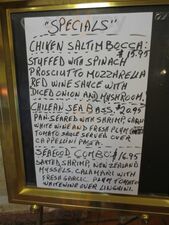 "SPECIALS"
CHIKEN SALTIMBOCCA:
$15.95
STUFFED WITH SPINACH
PROSCIUTTO MOZZARELLA
RED WINE SAUCE WITH
DICED ONION AND MUSHROOM.
CHILEAN SEA BASS. $20.95
PAN SEARED WITH SHRIMP, GARLIC
WHITE WINE AND FRESH PLUM
TOMATO SAUCE SERVED OVER
CAPPELLINI PASTA.
SEAFOOD COMBO: $16.95
SAUTED SHRIMP, NEW ZEALAND
MUSSELS, CALAMARI WITH
FRESH GARLIC PLUM TOMATO
WHITE WINE OVER LINGUINI.